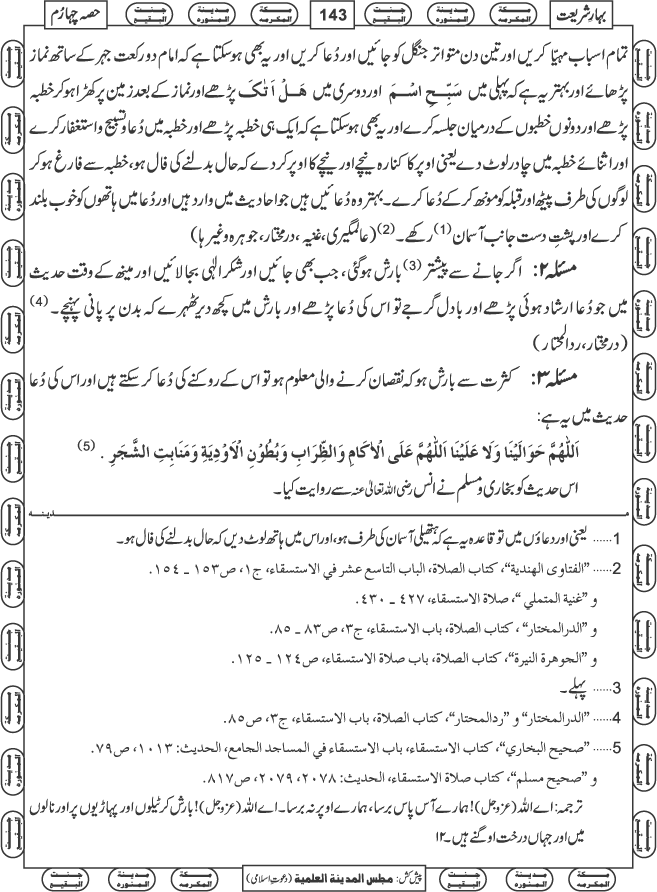 بہارِ شریعت
مدینۃ المنورہ
جنت البقیع
143
مکۃ المکرمہ
مدینۃ المنورہ
جنت البقیع
حصہ چہارم
تمام اسباب مہیّا کریں اور تین دن متواتر جنگل کو جائیں اور دُعا کریں اور یہ بھی ہوسکتا ہے کہ امام دو رکعت جہر کے ساتھ نماز
پڑھائے اور بہتر یہ ہے کہ پہلی میں سَبِّحِ اسْمَ اور دوسری میں هَلْ اَتٰكَ پڑھے اور نماز کے بعد زمین پر کھڑا ہو کر خطبہ
پڑھے اور دونوں خطبوں کے درمیان جلسہ کرے اور یہ بھی ہوسکتا ہے کہ ایک ہی خطبہ پڑھے اور خطبہ میں دُعا و تسبیح و استغفار کرے
اور اثنائے خطبہ میں چادر لوٹ دے یعنی اوپر کا کنارہ نیچے اور نیچے کا اوپر کردے کہ حال بدلنے کی فال ہو، خطبہ سے فارغ ہو کر
لوگوں کی طرف پیٹھ اور قبلہ کو مونھ کرکے دُعا کرے۔ بہتر وہ دُعائیں ہیں جو احادیث میں وارد ہیں اور دُعا میں ہاتھوں کو خوب بلند
کرے اور پشتِ دست جانب آسمان (1) رکھے۔ (2) (عالمگیری، غنیہ، درمختار، جوہرہ وغیرہا)
مسئلہ ۲: اگر جانے سے پیشتر (3) بارش ہوگئی، جب بھی جائیں اور شکرِ الٰہی بجا لائیں اور مینھ کے وقت حدیث
میں جو دُعا ارشاد ہوئی پڑھے اور بادل گرجے تو اس کی دُعا پڑھے اور بارش میں کچھ دیر ٹھہرے کہ بدن پر پانی پہنچے۔ (4)
(درمختار، ردالمحتار)
مسئلہ ۳: کثرت سے بارش ہو کہ نقصان کرنے والی معلوم ہو تو اس کے روکنے کی دُعا کرسکتے ہیں اور اس کی دُعا
حدیث میں یہ ہے:
اَللّٰهُمَّ حَوَالَيْنَا وَلَا عَلَيْنَا اَللّٰهُمَّ عَلَى الْاٰكَامِ وَالظِّرَابِ وَبُطُوْنِ الْاَوْدِيَةِ وَمَنَابِتِ الشَّجَرِ . (5)
اس حدیث کو بخاری و مسلم نے انس رضی اللہ تعالیٰ عنہ سے روایت کیا۔
مدینہ
1...... یعنی اور دعاؤں میں تو قاعدہ یہ ہے کہ ہتھیلی آسمان کی طرف ہو، اور اس میں ہاتھ لوٹ دیں کہ حال بدلنے کی فال ہو۔
2...... ”الفتاوی الهندية“، كتاب الصلاة، الباب التاسع عشر في الاستسقاء، ج١، ص١٥٣ ـ ١٥٤.
و ”غنية المتملي“، صلاة الاستسقاء، ٤٢٧ ـ ٤٣٠.
و ”الدرالمختار“، كتاب الصلاة، باب الاستسقاء، ج٣، ص٨٣ ـ ٨٥.
و ”الجوهرة النيرة“، كتاب الصلاة، باب صلاة الاستسقاء، ص١٢٤ ـ ١٢٥.
3...... پہلے۔
4...... ”الدرالمختار“ و ”ردالمحتار“، كتاب الصلاة، باب الاستسقاء، ج٣، ص٨٥.
5...... ”صحيح البخاري“، كتاب الاستسقاء، باب الاستسقاء في المساجد الجامع، الحديث: ١٠١٣، ص٧٩.
و ”صحيح مسلم“، كتاب صلاة الاستسقاء، الحديث: ٢٠٧٨، ٢٠٧٩، ص٨١٧.
ترجمہ: اے اللہ (عزوجل)! ہمارے آس پاس برسا، ہمارے اوپر نہ برسا۔ اے اللہ (عزوجل)! بارش کر ٹیلوں اور پہاڑیوں پر اور نالوں
میں اور جہاں درخت اوگتے ہیں۔ ۱۲
جنت البقیع
مدینۃ المنورہ
مکۃ المکرمہ
پیش کش: مجلس المدینۃ العلمیۃ (دعوتِ اسلامی)
مکۃ المکرمہ
مدینۃ المنورہ
جنت البقیع